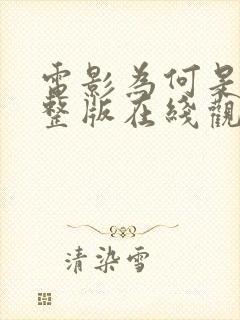 電影為何是
整版在綫觀
清染雪